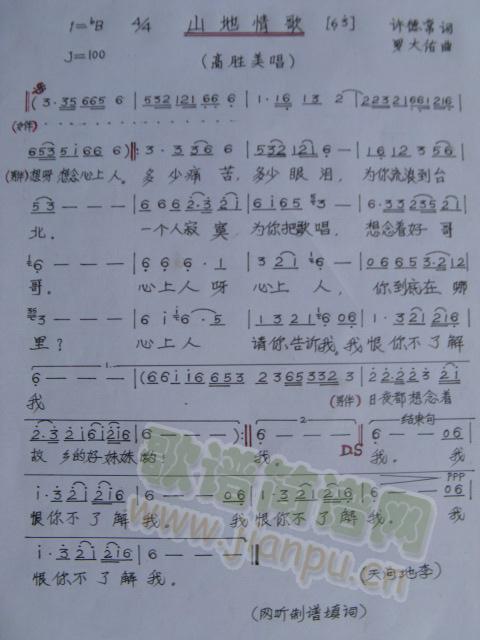 1=ᵇB 4/4 山地情歌 [6 3] 许德常 词
J=100 (高胜美唱) 罗大佑 曲
‖( 3·35 665 6 | 532 121 66 6 | 1·16 13 2 | 223216612 16
(女伴)
6535 i 66 6 )‖: 3·3 36 6 | 532 121 6 | 16 12 3 56 |
(男伴)想呀想念心上人。多少痛苦,多少眼泪,为你流浪到台
53 — — | 666 23 21 | 6165 3 — | 6·33 235 21 |
北。一个人寂寞 为你把歌唱,想念着好哥
6 — — — | 6 6 6 · 1 | 3 21 6 — | 06653·212 |
哥。心上人呀 心上人,你到底在哪
3 — — — | 6 i 6 · 5 | 1321 6 06 | 1·32126 |
里? 心上人 请你告诉我。我恨你不了解
6 — — — | (66 i i 6 653 2 36533 2 3 | 2·2·2 3 21
我 (男伴)日夜都想念着
2·32 i6i2i6 | 6 — — — ):‖ 6 — — — ‖ 6 — — 06 |
结束句
故乡的好妹妹哟! 我。 DS 我。我
i·32i2i6 | 6 — — 06 | i·32i2i6 | 6 — — 06 |
PPP
恨你不了解我。我恨你不了解我。我
i·32i2i6 | 6 — — — ‖
恨你不了解我。 (天河地李)
(网听制谱填词)
歌谱简谱网
www.jianpu.cn